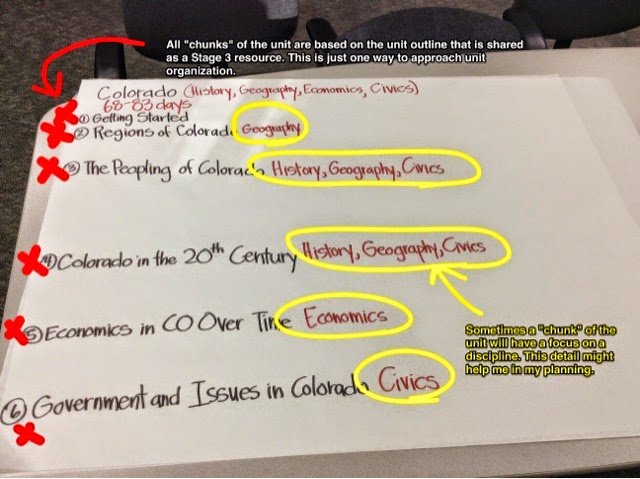 All "chunks" of the unit are based on the unit outline that is shared
as a Stage 3 resource. This is just one way to approach unit
organization.
Colorado (History, Geography, Economics, Civics)
68-83 days
① Getting Started
② Regions of Colorado Geography
③ The Peopling of Colorado History, Geography, Civics
④ Colorado in the 20th Century History, Geography, Civics
⑤ Economics in CO Over Time Economics
⑥ Government and Issues in Colorado Civics
Sometimes a "chunk" of the
unit will have a focus on a
discipline. This detail might
help me in my planning.